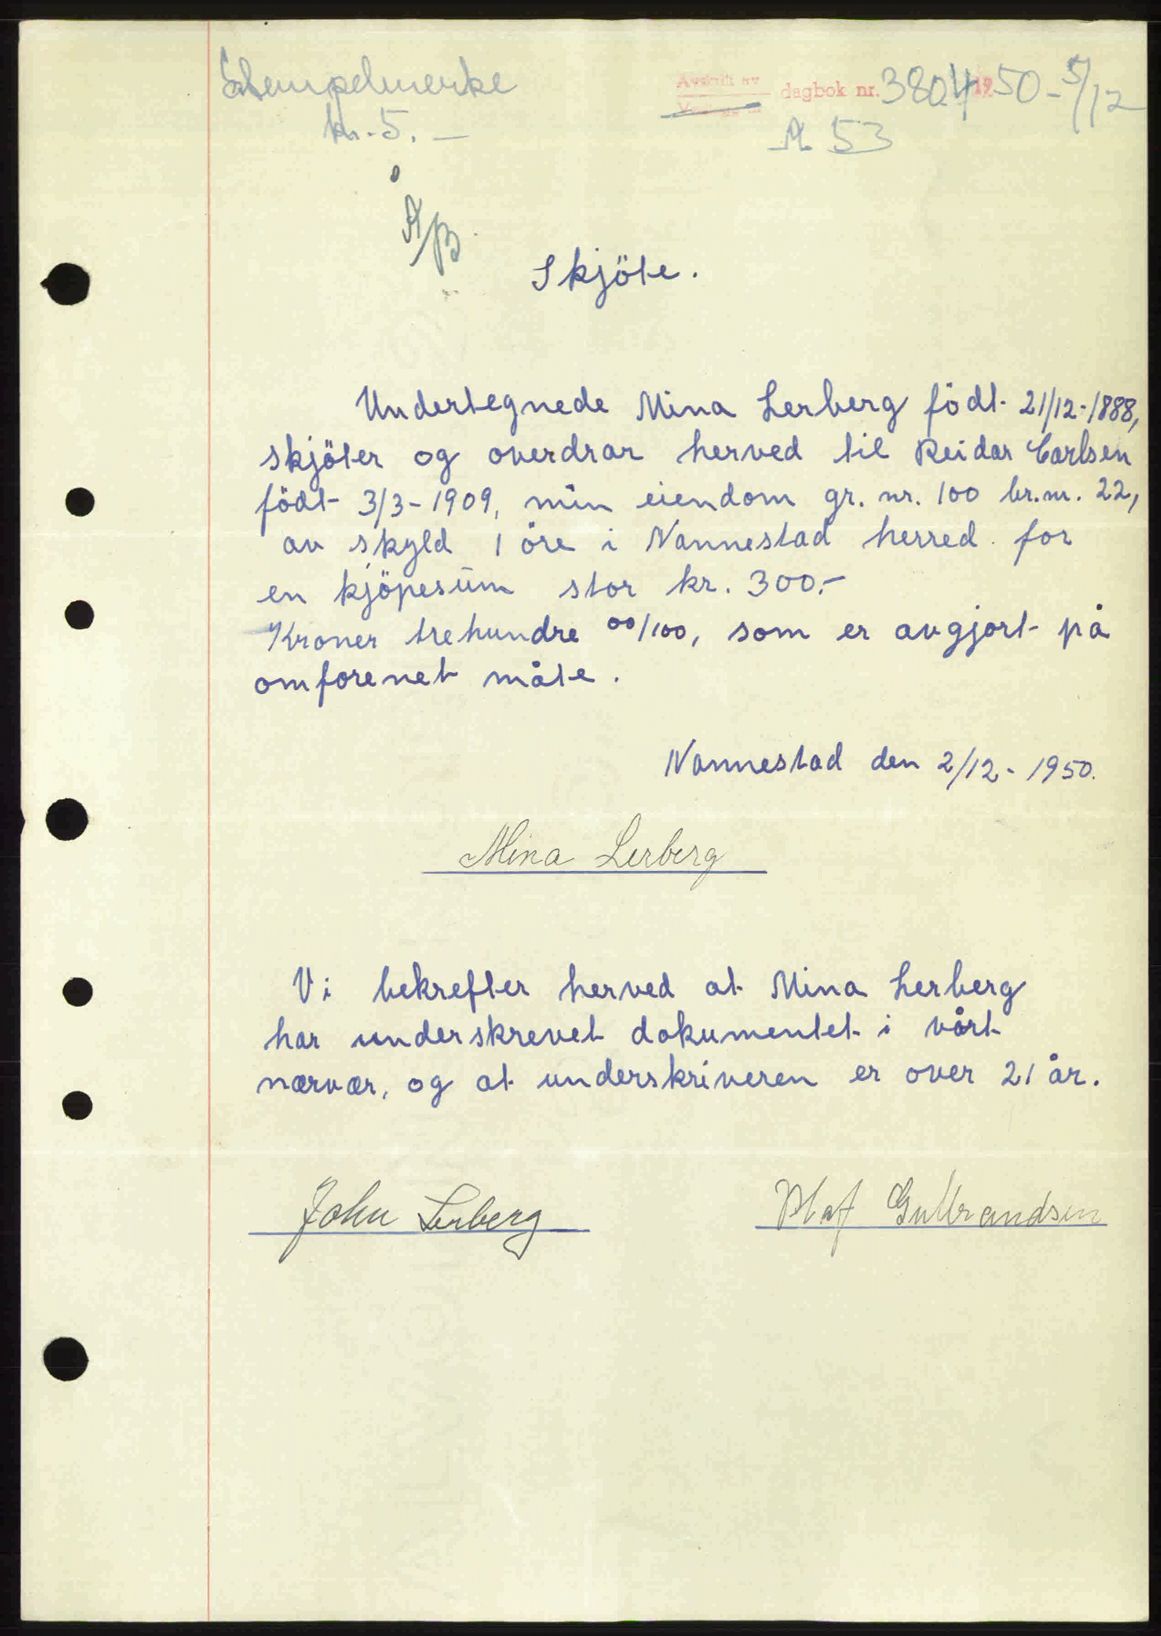 Stempelmerke
kr. 5. –
Avskrift av
dagbok nr. 3804 1950 – 5/12
A 53
A/B
Skjöte.
Undertegnede Mina Lerberg födt 21/12-1888,
skjöter og overdrar herved til Reidar Carlsen
födt 3/3-1909, min eiendom gr. nr. 100 br.nr. 22,
av skyld 1 öre i Nannestad herred for
en kjöpesum stor kr. 300.-
Kroner trehundre 00/100, som er avgjort på
omforenet måte.
Nannestad den 2/12-1950.
Mina Lerberg
Vi bekrefter herved at Mina Lerberg
har underskrevet dokumentet i vårt
nærvær, og at underskriveren er over 21 år.
John Lerberg
Olaf Gulbrandsen